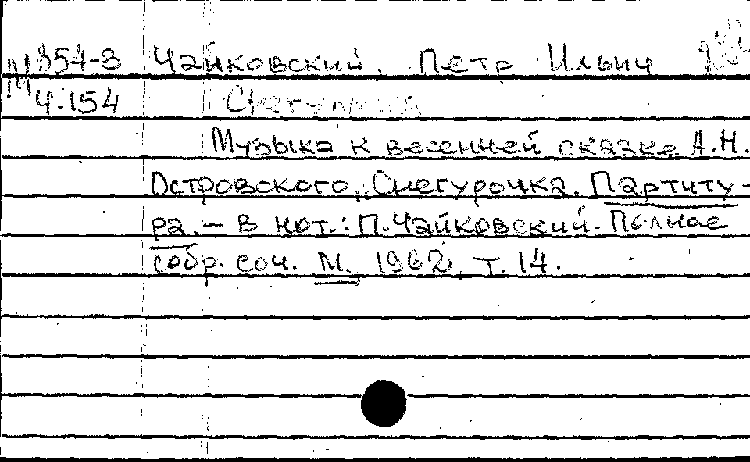 М 354-8 Чайковский, Петр Ильич
Ч.154 Снегурочка
Музыка к весенней сказке А.Н.
Островского „Снегурочка. Партиту-
ра. – В нот.: П. Чайковский. Полное
собр. соч. М. 1962, т. 14.